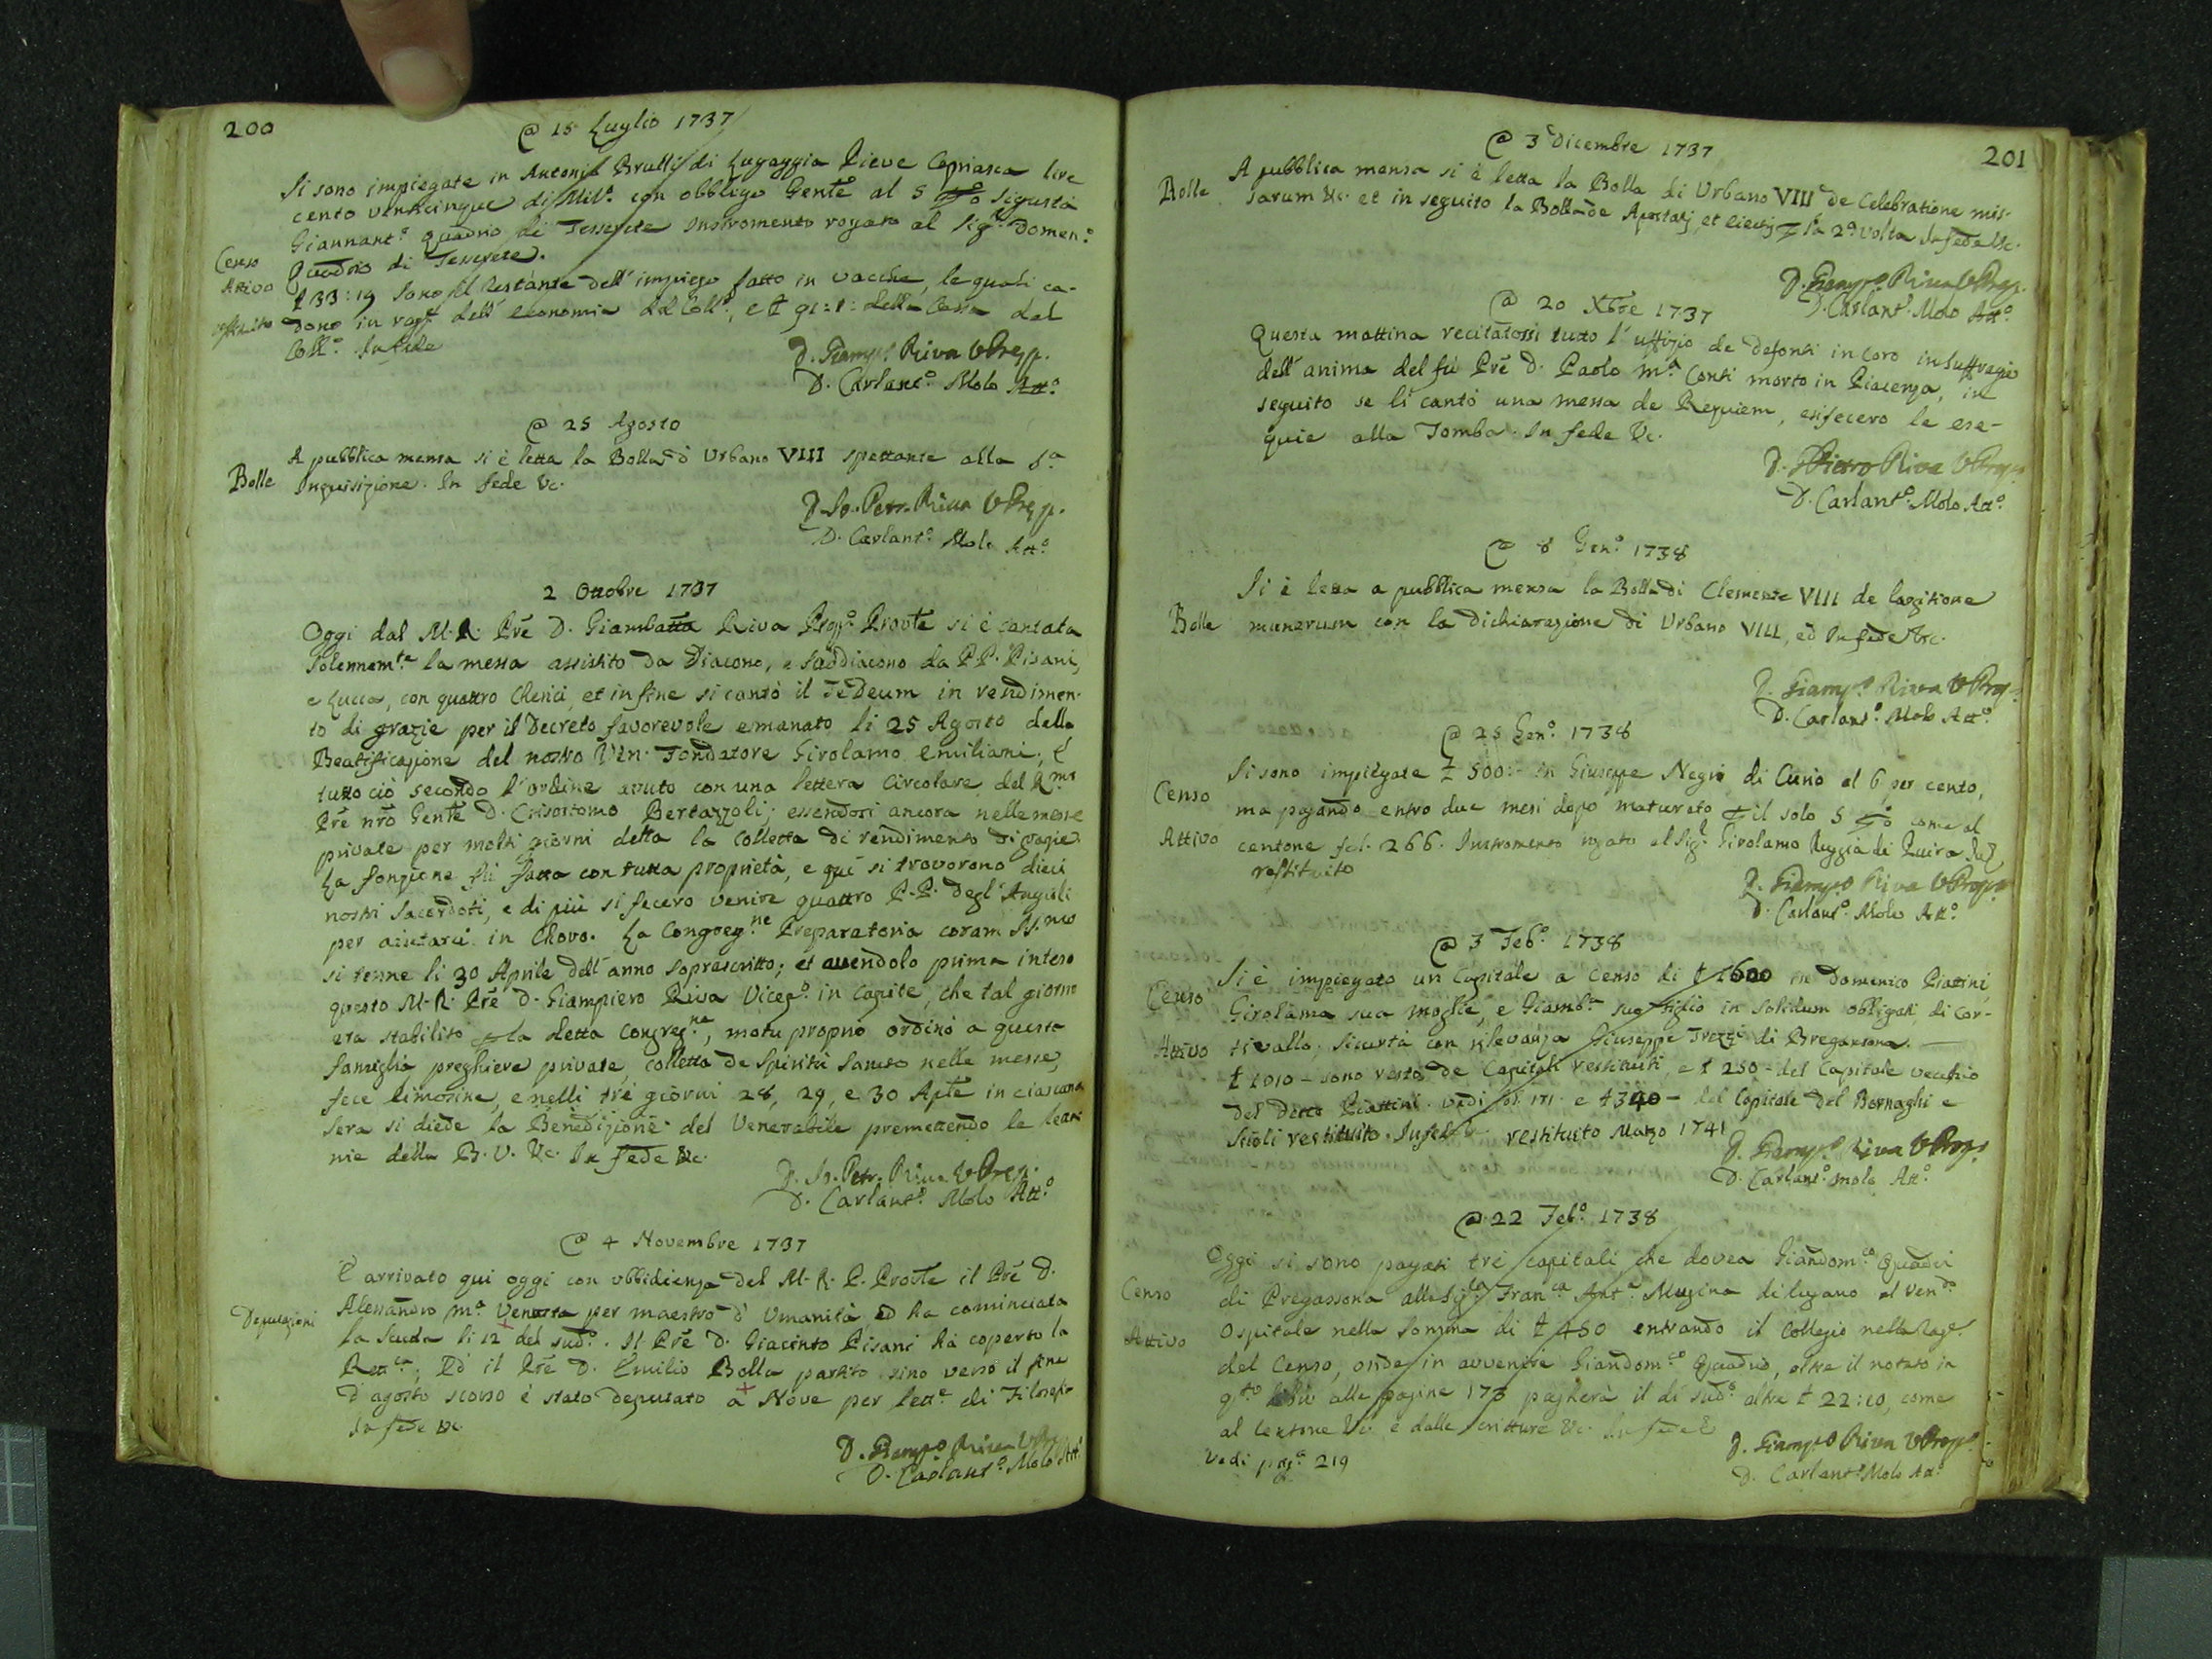 200
@ 15 Luglio 1737
Si sono impiegate in Antonio Brulli di Lugaggia Pieve Capriasca lire
cento venticinque di Mil.º con obbligo Gent.º al 5 p % Sigurtà
Giannant.º Quadrio di Tesserete Instromento rogato al Sig.r Domen.º
Quadrio di Tesserete.
Censo
Attivo
restituito
£ 33:19 sono il restante dell' impiego fatto in vacche, le quali ca-
dono in rag.e dell' economia del Coll.º, e £ 91:1: della Cassa del
Coll.º In fede
D. Giamp.º Riva VPrep.
D. Carlant.º Molo Att.º
@ 25 Agosto
Bolle
A pubblica mensa si è letta la Bolla d'Urbano VIII spettante alla S.a
Inquisizione. In fede &c.
D. Jo. Petr. Riva VPrep.
D. Carlant.º Molo Att.º
2 Ottobre 1737
Oggi dal M. R. Prē D. Giambatta Riva Provte si è cantata
solennem.te la messa assistito da Diacono, e Suddiacono da PP. Pisani,
e Lucca, con quattro Cherici, et in fine si cantò il TeDeum in rendimen-
to di grazie per il Decreto favorevole emanato li 25 Agosto della
Beatificazione del nostro Ven. Fondatore Girolamo Emiliani, e
tutto ciò secondo l'ordine avuto con una lettera Circolare del R.mo
Prē nrō Genle D. Crisostomo Bertazzoli; essendosi ancora nelle messe
private per molti giorni detta la Colletta di rendimento di grazie.
La fonzione fù fatta con tutta proprietà, e quì si trovorono dieci
nostri Sacerdoti, e di più si fecero venire quattro P.P. degl'Angioli
per aiutarci in Choro. La Congreg.ne Preparatoria coram SS.mo
si tenne li 30 Aprile dell'anno soprascritto; et avendolo prima inteso
questo M. R. Prē D. Giampiero Riva Vicep.º in capite, che tal giorno
era stabilito p la detta Congreg.ne, motu proprio ordinò a questa
famiglia preghiere private, colletta de Spiritu Sancto nelle messe,
fece limosine, e nelli trè giorni 28, 29, e 30 Aple in ciascuna
sera si diede la Benedizione del Venerabile premettendo le leta-
nie della B. V. &c. In fede &c.
D. Jo. Petr. Riva VPrep.
D. Carlant.º Molo Att.º
@ 4 Novembre 1737
Deputazioni
È arrivato qui oggi con ubbidienza del M. R. P. Provle il Prē D.
Alessandro M.a Venosta per maestro d'Umanità, ed ha cominciata
la Scuola li 12 del sud.º. Il Prē D. Giacinto Pisani hà coperto la
Rett.ca; Ed il Prē D. Emilio Bolla partito sino verso il fine
d'agosto scorso è stato deputato a Nove per lett.e di Filosofia
In fede &c
D. Giamp.º Riva VPr.
D. Carlant.º Molo Att.º
201
@ 3 Dicembre 1737
Bolle
A pubblica mensa si è letta la Bolla di Urbano VIII de Celebratione mis-
sarum &c. et in seguito la Bolla de Apostatis, et eiectis p la 2.a volta In fede &c.
D. Giamp.º Riva VPrep.
D. Carlant.º Molo Att.º
@ 20 Xbre 1737
Questa mattina recitatosi tutto l'uffizio de defonti in Coro in suffragio
dell'anima del fù Prē D. Paolo M.a Conti morto in Piacenza, in
seguito se li cantò una messa de Requiem, e si fecero le ese-
quie alla Tomba. In fede &c.
D. GPietro Riva VPrep.
D. Carlant.º Molo Att.º
@ 8 Gen.º 1738
Bolle
Si è letta a pubblica mensa la Bolla di Clemente VIII de largitione
munerum con la dichiarazione di Urbano VIII, ed In fede &c.
D. Giamp.º Riva VPrep.
D. Carlant.º Molo Att.º
@ 25 Gen.º 1738
Censo
Attivo
Si sono impiegate £ 500:- in Giuseppe Negri di Curio al 6 per cento,
ma pagando entro due mesi dopo maturato p il solo 5 p % come al
centone fol. 266. Instromento rogato al Sig.r Girolamo Ruggia di Pura
restituito
D. Giamp.º Riva VPrep.
D. Carlant.º Molo Att.º
@ 3 Feb.º 1738
Censo
Attivo
Si è impiegato un Capitale a Censo di £ 1600 in Domenico Piattini
Girolama sua moglie, e Giamb.a suo figlio in solidum obbligati, di Cor-
tivallo. Sicurtà con rilevanza Giuseppe Trezzi di Breganzona.
£ 1010 - sono resto de Capitali restituiti, e £ 250 - del Capitale vecchio
del detto Piattini. vedi fol. 171. e £ 340 - del Capitale del Bernaghi e
restituito. In fede restituito Marzo 1741
D. Giamp.º Riva VPrep.
D. Carlant.º Molo Att.º
@ 22 Feb.º 1738
Censo
Attivo
Oggi si sono pagati trè capitali che dovea Giandom.co Quadri
di Pregassona alla Sig.ra Fran.ca Ant.a Mugina di Lugano al Ven.do
Ospitale nella somma di £ 450 entrando il Collegio nella rag.e
del Censo, onde in avvenire Giandom.co Quadrio, oltre il notato in
q.to libro alle pagine 173 pagherà il dì sud.º altre £ 22:10, come
al Centone &c. e dalle scritture &c. In fede
Vedi pag.a 219
D. Giamp.º Riva VPrep.
D. Carlant.º Molo Att.º